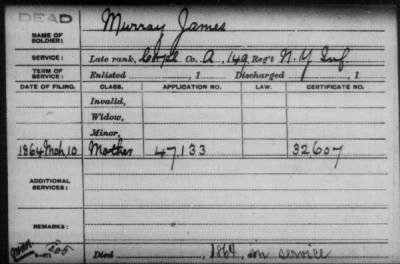 DEAD
NAME OF SOLDIER: Murray James
SERVICE: Late rank, Corpl Co. A, 149 Reg't N.Y. Inf.
TERM OF SERVICE: Enlisted , 1 Discharged , 1
DATE OF FILING. CLASS. APPLICATION NO. LAW. CERTIFICATE NO.
Invalid,
Widow,
Minor,
1864 Mch, 10 Mother 47,133 32607
ADDITIONAL SERVICES:
REMARKS:
Died , 1864, in service